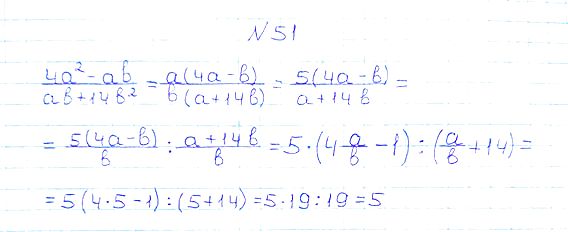 N 51
(4a² - ab)/(ab + 14b²) = a(4a - b)/b(a + 14b) = 5(4a - b)/(a + 14b) =
= 5(4a - b)/b : (a + 14b)/b = 5 · (4 a/b - 1) : (a/b + 14) =
= 5(4·5 - 1) : (5 + 14) = 5·19 : 19 = 5